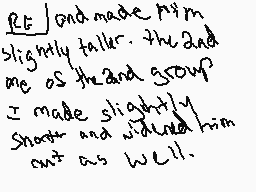 RE] and made him
slightly taller. the 2nd
one of the 2nd group
I made slightly
shorter and widened him
out as well.